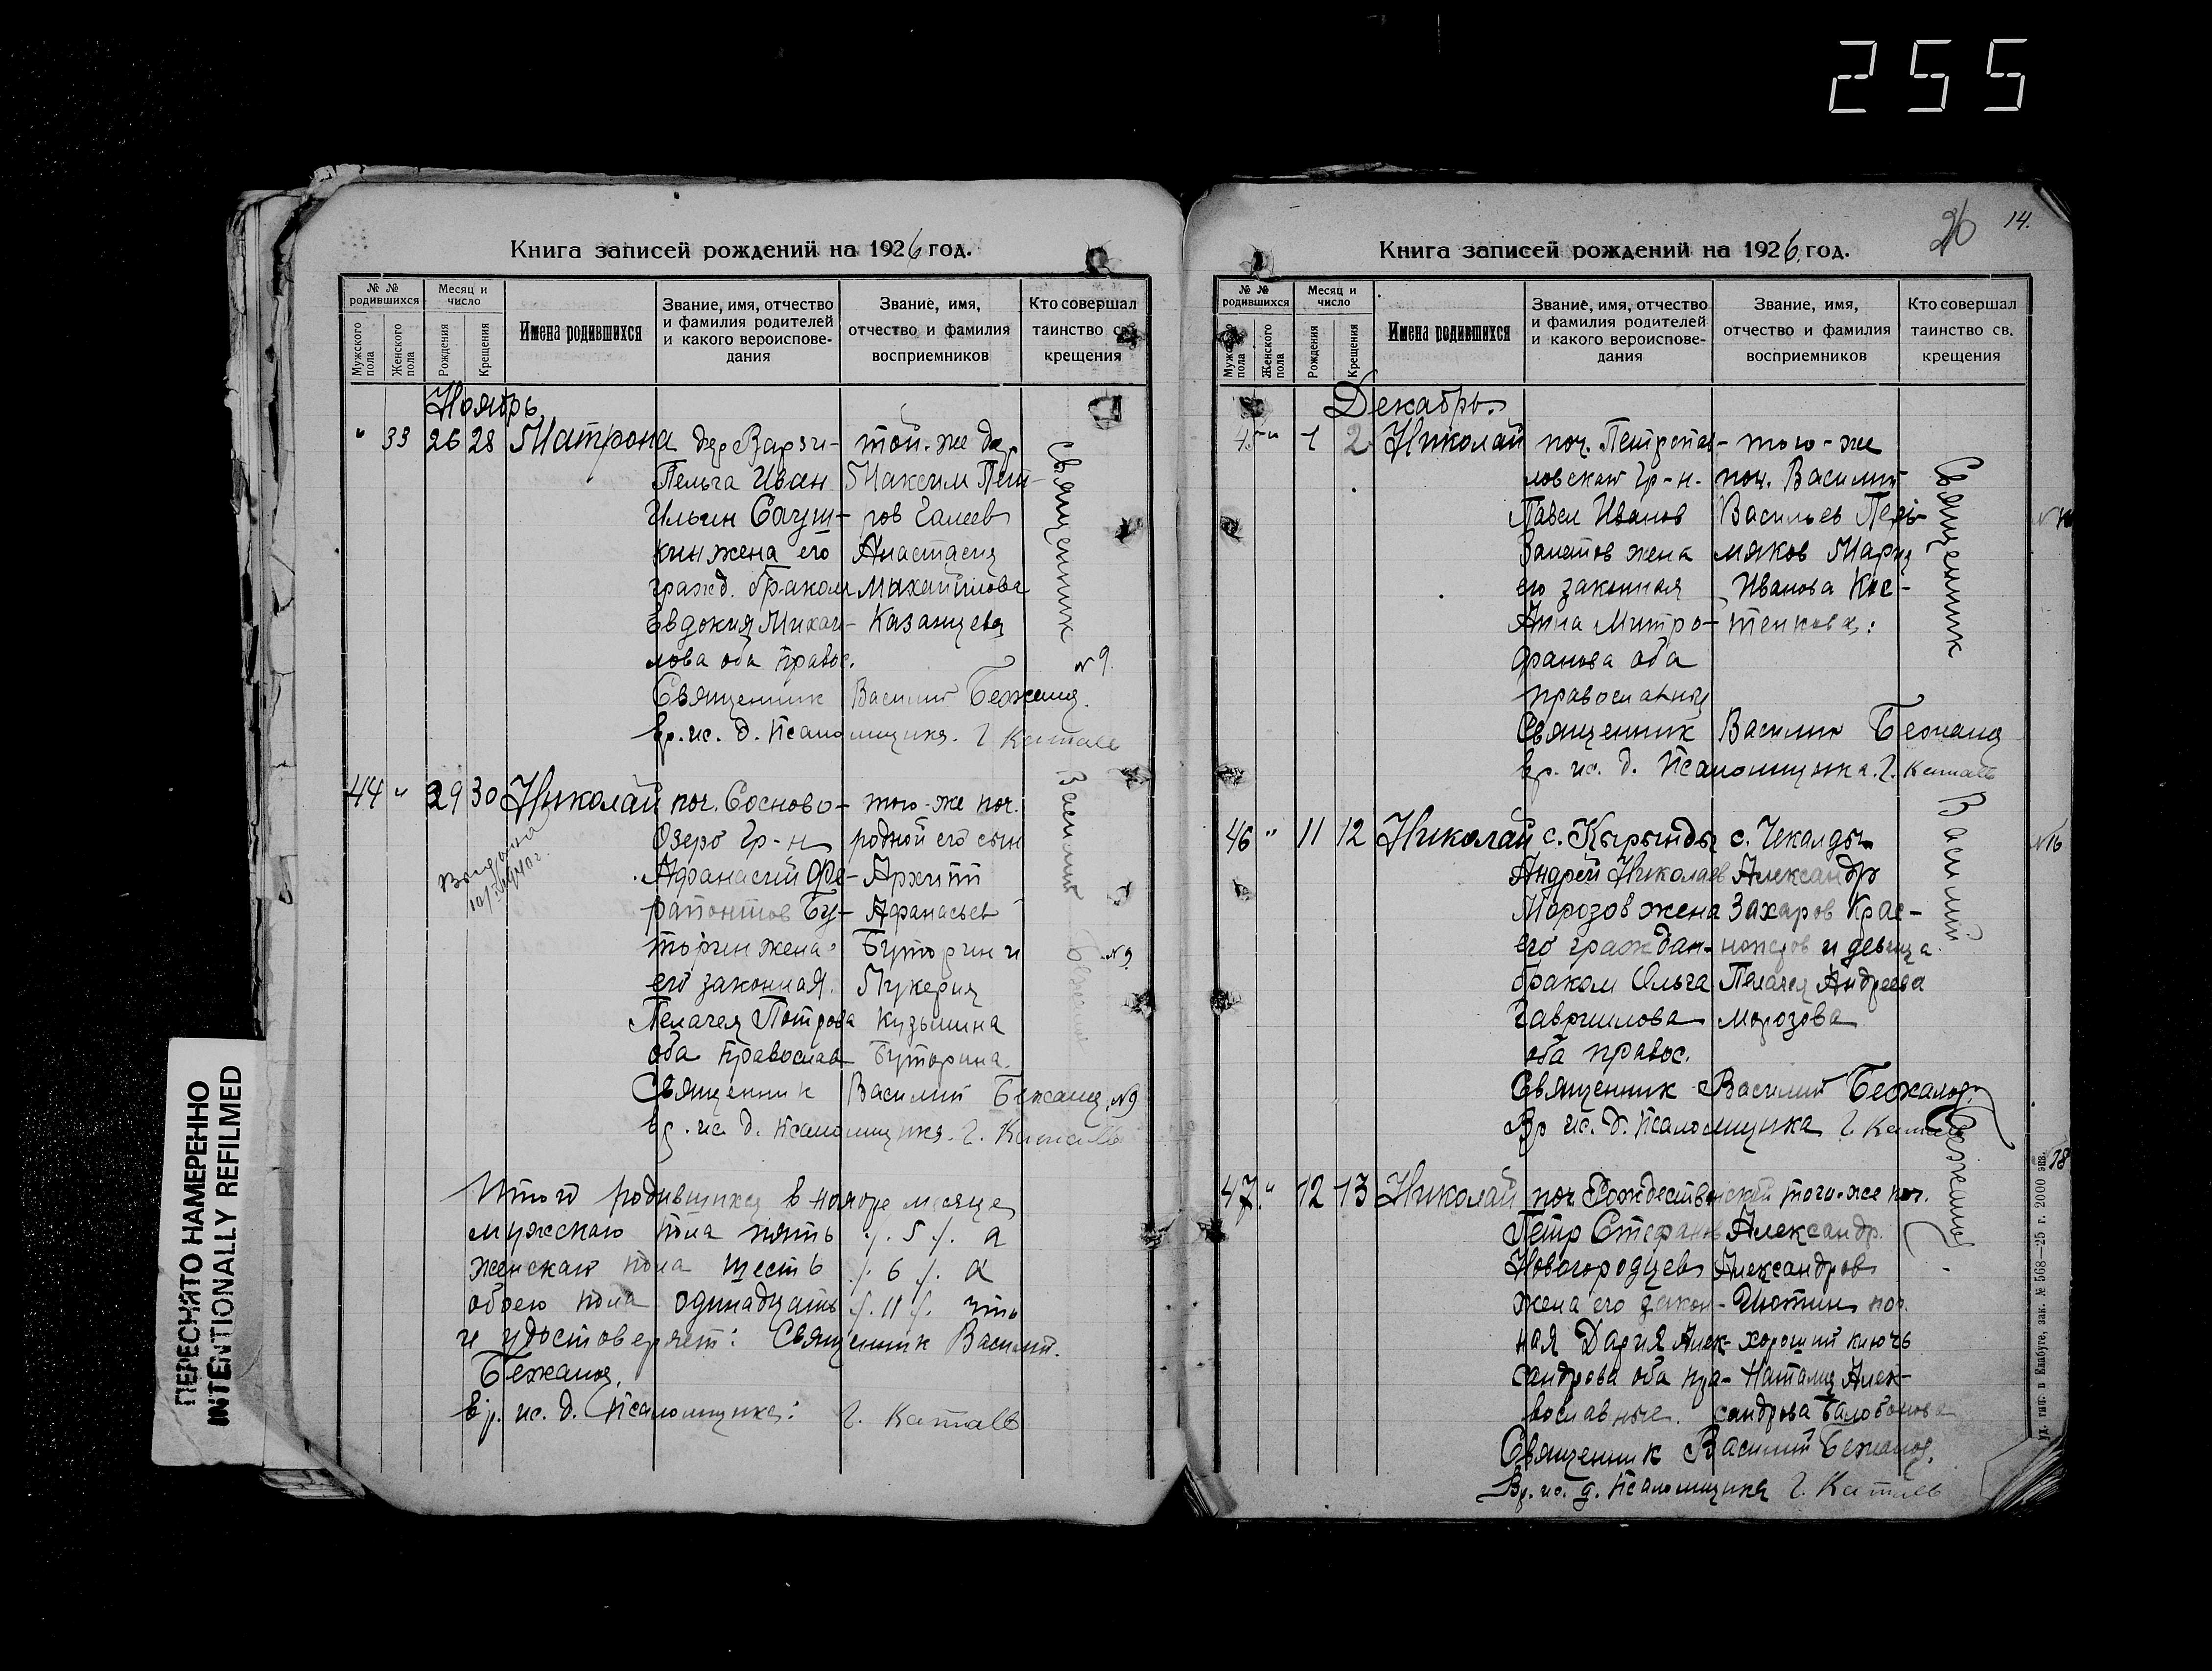 255
Книга записей рождений на 1926 год.
№ №
родившихся
Месяц и
число
Мужского
пола
Женского
пола
Рождения
Крещения
Имена родившихся
Звание, имя, отчество
и фамилия родителей
и какого вероиспове-
дания
Звание, имя,
отчество и фамилия
восприемников
Кто совершал
таинство св.
крещения
Ноябрь
" 33 26 28 Матрона дер Варзи- той-же дер
Пельга Иван Максим Пет-
Ильин Сауш- ров Галеев
кин жена его Анастасия
гражд. браком Михайлова
Евдокия Михаи- Казанцева
лова оба правос.
№ 9.
Священник Василий Бежанц.
вр. ис. д. псаломщика. Г.
44 " 29 30 Николай поч. Сосново- того-же поч.
Озеро гр-н родной его сын
Афанасий Фе- Архипп
рапонтов Бу- Афанасьев
торин жена Буторин и
его законная Лукерия
Пелагея Петрова Кузьмина
оба православ Буторина.
Выдана
1940 г.
№ 9
Священник Василий Бежанц. №9
вр. ис. д. псаломщика. Г.
Священник
Василий
Итого родившихся в ноябре месяце
мужскаго пола пять /. 5 /. а
женскаго пола шесть /. 6 /. а
обоего пола одинадцать /. 11 /. что
и удостоверяет: Священник Василий
Бежанц.
вр. ис. д. псаломщика: Г.
ПЕРЕСНЯТО НАМЕРЕННО
INTENTIONALLY REFILMED
26 14.
Книга записей рождений на 1926 год.
№ №
родившихся
Месяц и
число
Мужского
пола
Женского
пола
Рождения
Крещения
Имена родившихся
Звание, имя, отчество
и фамилия родителей
и какого вероиспове-
дания
Звание, имя,
отчество и фамилия
восприемников
Кто совершал
таинство св.
крещения
Декабрь.
45 " 1 2 Николай поч. Петропав- того-же
ловскаго гр-н. поч. Василий
Павел Иванов Васильев
жена Мария
его законная Иванова Кос-
Анна Митро- тенкова:
фанова оба
православныя
Священник Василий Бежанц
вр. ис. д. псаломщика. Г.
46 " 11 12 Николай с. Кырынды с. Чекалды
№16
Андрей Николаев Александр
Морозов жена Захаров Крас-
его граждан- ноперов и девица
браком Ольга Пелагея Андреева
Гаврилова Морозова
оба правос.
Священник Василий Бежанц.
Вр ис. д. псаломщика Г.
47. " 12 13 Николай поч. Рождественский того-же поч.
Петр Стефанов Александр.
Новогородцев Александров
жена его закон- поч.
ная Дария Алек- хороший ключь
сандрова оба пра- Наталия Алек-
вославные. сандрова Балобанова
Священник Василий Бежанц.
Вр. ис. д. псаломщика Г.
Священник
Василий
Бежанц.
18
уд. тип. в Елабуге, зак. № 568—25 г. 2000 экз.